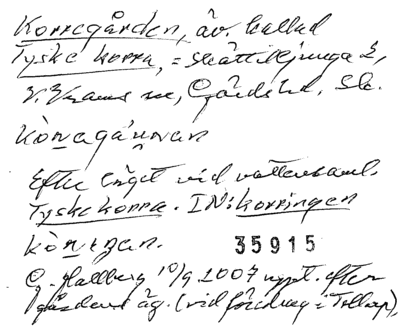 Korregården, äv. kallad
Tyske korra, = Skättilljunga 2,
V. Vrams sn, Gärds hd, Sk.
kònagánnan
Efter änget vid vattensaml.
Tyske korra. IN: korringen
kònzan. 35915
G. Hallberg 10/9 2007 uppt. efter
gårdens äg. (vid föredrag i Tollarp),